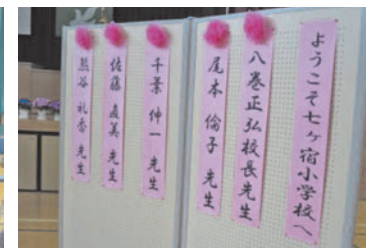 ようこそ七ヶ宿小学校へ
八巻正弘校長先生
尾本 倫子 先生
千葉 伸一 先生
佐藤 真美 先生
熊谷 礼香 先生